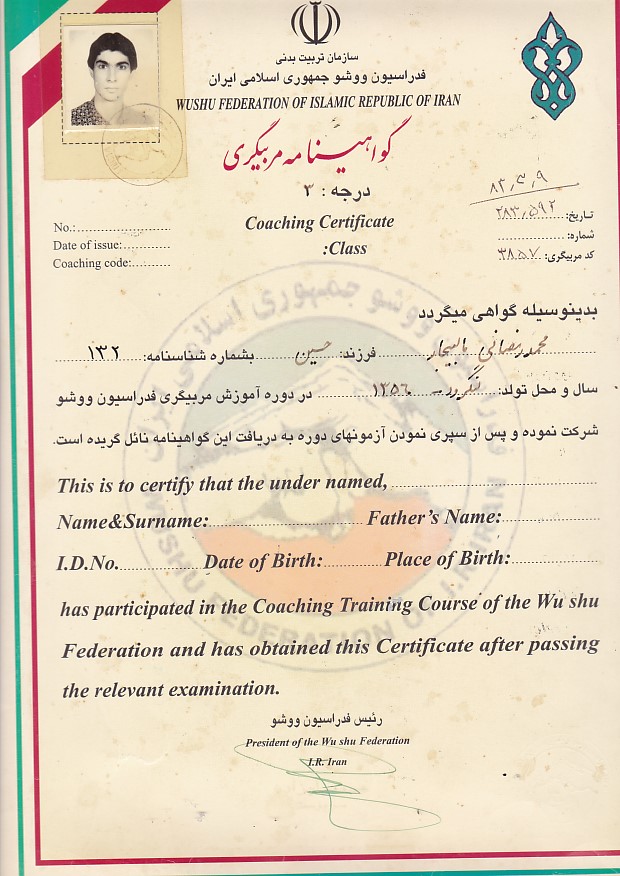 سازمان تربیت بدنی
فدراسیون ووشو جمهوری اسلامی ایران
WUSHU FEDERATION OF ISLAMIC REPUBLIC OF IRAN
گواهینامه مربیگری
درجه : ۳
۸۳٫۳٫۹
Coaching Certificate
:Class
تاریخ: ۲۸۳٫۵۹۲
شماره:
کد مربیگری: ۳۸۵۷
No.:
Date of issue:
Coaching code:
بدینوسیله گواهی میگردد
محمد رمضانی فرزند: حسین بشماره شناسنامه: ۱۳۲
سال و محل تولد: لنگرود ۱۳۵۶ در دوره آموزش مربیگری فدراسیون ووشو
شرکت نموده و پس از سپری نمودن آزمونهای دوره به دریافت این گواهینامه نائل گریده است.
This is to certify that the under named,
Name&Surname: Father's Name:
I.D.No. Date of Birth: Place of Birth:
has participated in the Coaching Training Course of the Wu shu
Federation and has obtained this Certificate after passing
the relevant examination.
رئیس فدراسیون ووشو
President of the Wu shu Federation
I.R. Iran